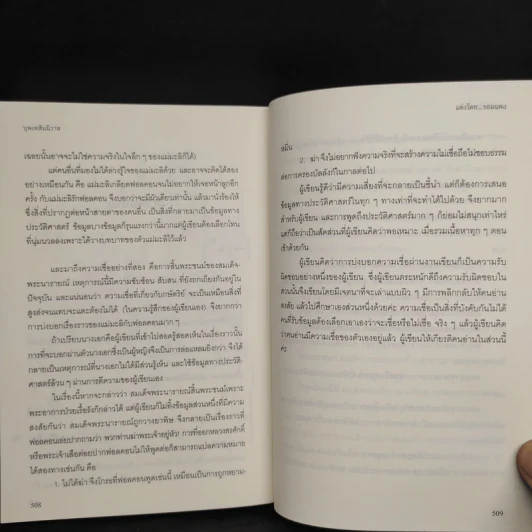 บุพเพสันนิวาส
เฉลยนั้นอาจจะไม่ใช่ความจริงในใจลึก ๆ ของแม่มะลิก็ได้)
แต่คนอื่นที่มองไม่ได้ตรงรู้ใจของแม่มะลิด้วย และอาจจะคิดได้สอง
อย่างเหมือนกัน คือ แม่มะลิเกลียดฟอลคอนจนไม่อยากให้เจอหน้าลูกอีก
ครั้ง กับแม่มะลิรักฟอลคอน จึงบอกว่าจะมีผัวเดียวเท่านั้น แล้วมานั่งร้องไห้
ซึ่งสิ่งที่ปรากฏต่อหน้าสายตาของคนอื่น เป็นสิ่งที่กลายมาเป็นข้อมูลทาง
ประวัติศาสตร์ ข้อมูลบางข้อมูลก็รุนแรงกว่านี้มากแต่ผู้เขียนต้องเลือกโทน
ที่นุ่มนวลลงเพราะได้วางบทบาทของตัวแม่มะลิไว้แล้ว
และมาถึงความเชื่ออย่างที่สอง คือการสิ้นพระชนม์ของสมเด็จ-
พระนารายณ์ เหตุการณ์นี้มีความซับซ้อน สับสน ที่ยังถกเถียงกันอยู่ใน
ปัจจุบัน และแน่นอนว่า ความเชื่อที่เกี่ยวกับกษัตริย์ จะเป็นเหมือนสิ่งที่
สูงส่งจนแทบจะแตะต้องไม่ได้ (ในความรู้สึกของผู้เขียนเอง) จึงยากกว่า
การบ่งบอกเรื่องราวของแม่มะลิกับฟอลคอนมาก ๆ
ถ้าเปรียบนางเอกคือผู้เขียนที่เข้าไปสอดรู้สอดเห็นในเรื่องราวนั้น
การที่จะบอกผ่านตัวนางเอกซึ่งเป็นผู้หญิงจึงเป็นการล่อแหลมยิ่งกว่า จึงได้
กลายเป็นเหตุการณ์ที่นางเอกไม่ได้มีส่วนรู้เห็น และใช้ข้อมูลทางประวัติ-
ศาสตร์ล้วน ๆ ผ่านการตีความของผู้เขียนเอง
ในเรื่องนี้หากจะกล่าวว่า สมเด็จพระนารายณ์สิ้นพระชนม์เพราะ
พระอาการป่วยเรื้อรังก็กล่าวได้ แต่ผู้เขียนก็ไม่ทิ้งข้อมูลส่วนหนึ่งที่มีความ
สงสัยกันว่า สมเด็จพระนารายณ์ถูกวางยาพิษ จึงกลายเป็นเรื่องราวที่
ฟอลคอนเอ่ยปากถามว่า พวกท่านฆ่าพระเจ้าอยู่หัว! การที่ออกหลวงสรศักดิ์
หรือพระเจ้าเสือต่อยปากฟอลคอนไม่ให้พูดต่อก็สามารถแปลความหมาย
ได้สองทางเช่นกัน คือ
1. ไม่ได้ฆ่า จึงโกรธที่ฟอลคอนพูดเช่นนี้ เหมือนเป็นการถูกหยาม-
508
แต่งโดย...รอมแพง
หมิ่น
2. ฆ่า จึงไม่อยากฟังความจริงที่จะสร้างความไม่เชื่อถือไม่ชอบธรรม
ต่อการครองบัลลังก์ในกาลต่อไป
ผู้เขียนรู้ดีว่ามีความเสี่ยงที่จะกลายเป็นชี้นำ แต่ก็ต้องการเสนอ
ข้อมูลทางประวัติศาสตร์ในทุก ๆ ทางเท่าที่จะทำได้ไปด้วย จึงยากมาก
สำหรับผู้เขียน และการพูดถึงประวัติศาสตร์มาก ๆ ก็ย่อมไม่สนุกเท่าไหร่
แต่ก็ถือว่าเป็นสัดส่วนที่ผู้เขียนคิดว่าพอเหมาะ เมื่อรวมเนื้อหาทุก ๆ ตอน
เข้าด้วยกัน
ผู้เขียนคิดว่าการบ่งบอกความเชื่อผ่านงานเขียนก็เป็นความรับ
ผิดชอบอย่างหนึ่งของผู้เขียน ซึ่งผู้เขียนตระหนักดีถึงความรับผิดชอบใน
ส่วนนั้นจึงเขียนโดยมีเจตนาที่จะเล่าแบบผิว ๆ มีการพลิกกลับให้คนอ่าน
สงสัย แล้วไปศึกษาเองส่วนหนึ่งด้วยค่ะ ความเชื่อเป็นสิ่งที่บังคับกันไม่ได้
คนที่รับข้อมูลต้องเลือกเอาเองว่าจะเชื่อหรือไม่เชื่อ จริง ๆ แล้วผู้เขียนคิด
ว่าคนอ่านมีความเชื่อของตัวเองอยู่แล้ว ผู้เขียนให้เกียรติคนอ่านในส่วนนี้
ค่ะ
509